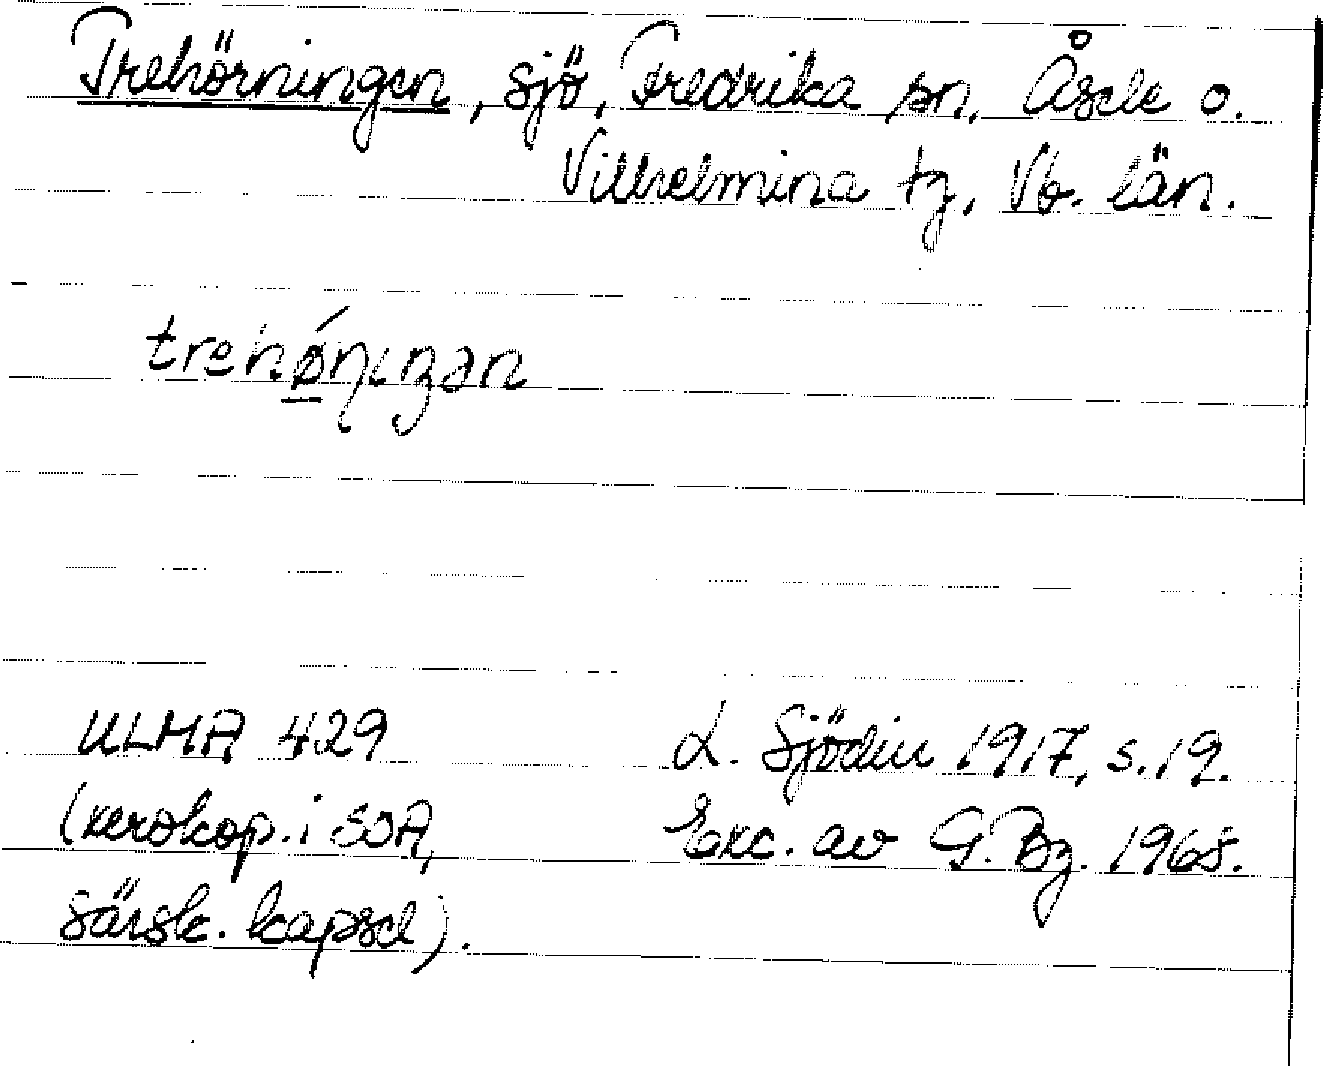 Trehörningen, sjö, Fredrika sn, Åsele o.
Vilhelmina tg, Vb. län.
trehǿ̱ɳıŋən
ULMA 429
(xerokop. i SOA,
särsk. kapsel).
L. Sjödin 1917, s. 19.
Exc. av G. Bg. 1968.